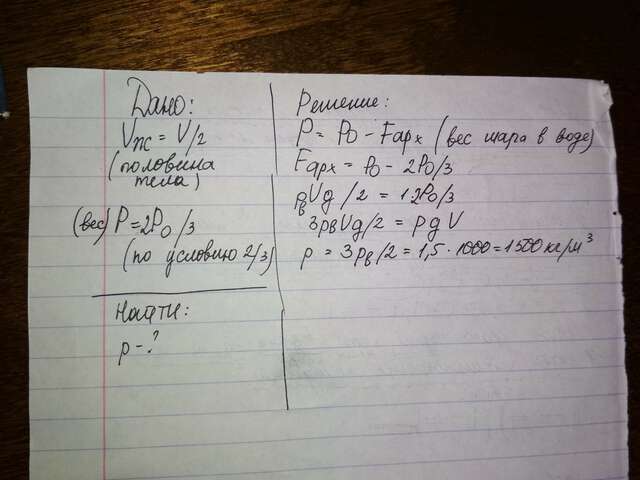 Дано:
Vпс = V/2
(половина
тела)
(вес) P = 2P₀/3
(по условию 2/3)
Найти:
p - ?
Решение:
P = P₀ - Fарх (вес шара в воде)
Fарх = P₀ - 2P₀/3
pвVg/2 = 12P₀/3
3pвVg/2 = pgV
p = 3pв/2 = 1,5 · 1000 = 1500 кг/м³